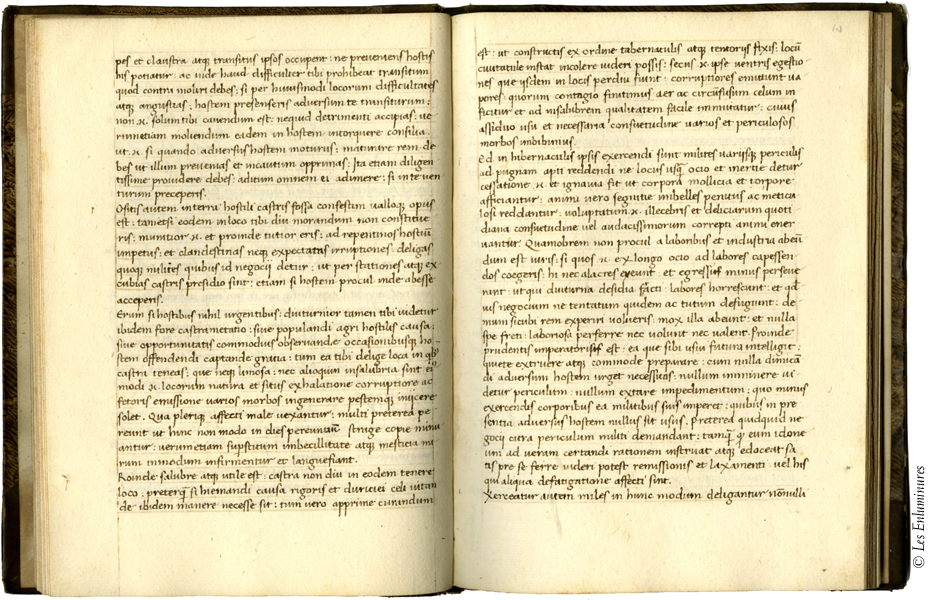 pes et claustra atq; transitus ipsos occupent: ne preveniens hostis
his potiatur: ac inde haud difficulter tibi prohibeat transitum
quod contra moliri debes: si per huiusmodi locorum difficultates
atq; angustias: hostem presenseris adversum te transiturum:
non solum tibi cavendum est: nequid detrimenti accipias: ve
rumetiam moliendum eadem in hostem intorquere consilia.
ut si quando adversus hostem moturus: maturare rem de
bes ut illum prevenias et incautum opprimas: Ita etiam diligen
tissime providere debes: aditum omnem ei adimere: si inte ven
turum preceperis.
Ositis autem in terra hostili castris fossa confestim valloq; opus
est: tametsi eodem in loco tibi diu morandum non constitue
ris: munitior et proinde tutior eris: ad repentinos hostium
impetus: et clandestinas neq; expectatas irruptiones: deligas
quoq; milites quibus id negocii detur: ut per stationes atq; ex
cubias castris presidio sint: etiam si hostem procul inde abesse
acceperis.
Erum si hostibus nihil urgentibus: diuturnior tamen tibi videtur
ibidem fore castrametatio: sive populandi agri hostilis causa:
sive opportunitatis commodius observande occasionibusq; ho
stem offendendi captande gratia: tum ea tibi delige loca in qb
castra teneas; que neq; limosa: nec alioquin insalubria sint ei
modi locorum natura et situs exhalatione corruptiore ac
fetoris emissione varios morbos ingenerare pestemq; iniicere
solet. Qua pleriq; affecti male vexantur: multi preterea pe
reunt ut hunc non modo in dies pereuntium strage copie minu
antur: verumetiam supstitum imbecillitate atq; mesticia mi
rum inmodum infirmentur et languefiant.
Roinde salubre atq; utile est: castra non diu in eodem tenere
loco: preterq; si hiemandi causa rigoris et duriciei celi vitan
de ibidem manere necesse sit: tum vero apprime curandum
est: ut constructis ex ordine tabernaculis atq; tentoriis fixis: locum
civitatule instar incolere videri possis: secus ipse ventris egestio
nes que iisdem in locis perdiu fiunt: corruptiores emittunt va
pores: quorum contagio finitimus aer ac circumfusum celum in
ficitur et ad insalubrem qualitatem facile immutatur: cuius
assiduo usu et necessaria consuetudine varios et periculosos
morbos imbibimus.
Ed in hibernaculis ipsis exercendi sunt milites variisq; periculis
ad pugnam apti reddendi ne locus usq; ocio et inertie detur
cessatione et ignavia fit ut corpora mollicia et torpore
afficiantur: animi vero segnitie imbelles penitus ac meticu
losi reddantur: voluptatum illecebris et deliciarum quoti
diana consuetudine vel audacissimorum correpti animi ener
vantur. Quamobrem non procul a laboribus et industria abeun
dum est viris: si quos ex longo ocio ad labores capessen
dos coegeris: hi nec alacres exeunt: et egressi minus perseve
rant: ut qui diuturna desidia facti labores horrescunt: et qd
vis negocium ne tentatum quidem ac tutum defugiunt: de
mum sicubi rem experiri volueris: mox illa abeunt: et nulla
spe freti: laboriosa perferre nec volunt nec valent. Proinde
prudentis imperatoris est: ea que sibi usui futura intelligit:
quiete extruere atq; commode preparare: cum nulla dimican
di adversum hostem urget necessitas: nullum imminere vi
detur periculum: nullum extare impedimentum; quo minus
exercendis corporibus ea militibus suis imperet: quibus in pre
sentia adversus hostem nullus sit usus. Preterea quidquid ne
gocii citra periculum multi demandant: tamq; eum idone
um ad veram certandi rationem instruat atq; edoceat sa
tis pre se ferre videri potest remissionis et laxamenti: vel his
qui aliqua defatigatione affecti sint.
Xerceatur autem miles in hunc modum deligantur nonnulli
© Les Enluminures